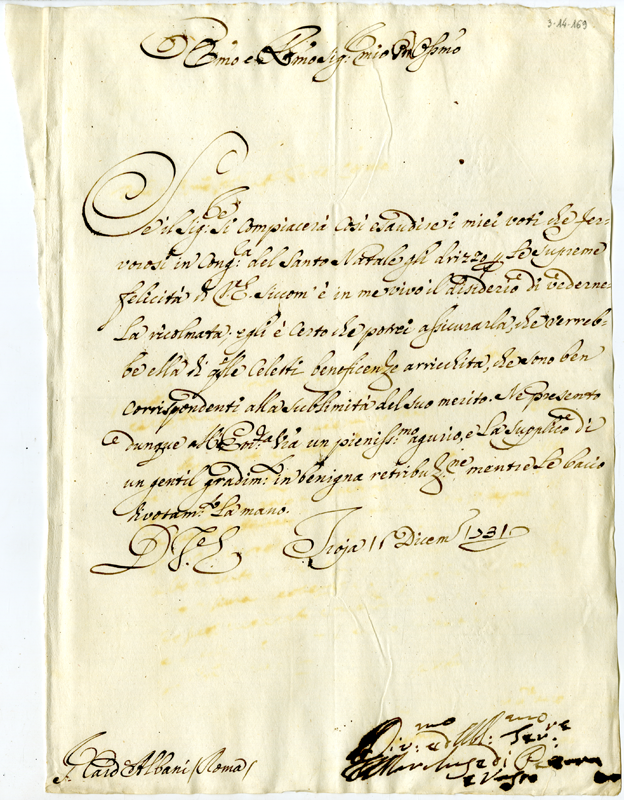 3-14-169
Emo e Rmo Sig: mio Pron Ossmo
Se il Sig:re si compiacerà così esaudire i miei voti che fer-
vorosi in Cong:a del Santo Natale gli drizzo p. le supreme
felicità di V:E. siccom' è in me vivo il disiderio di vederne-
la ricolmata, egli è certo che potrei assicurarla, che verreb-
be ella di q:lle Celesti beneficenze arricchita, che sono ben
corrispondenti alla sublimità del suo merito. Ne presento
dunque all' Em:za V:ra un pieniss:mo agurio, e La supplico di
un gentil gradim:to in benigna retribuz:ne mentre Le bacio
divotam:te la mano.
D V:E. Troja 11 Dicem:e 1731
S. Card Albani (Roma)
Div:mo ed Obl:mo Ser:re
Marchese di Pescara
e Vasto